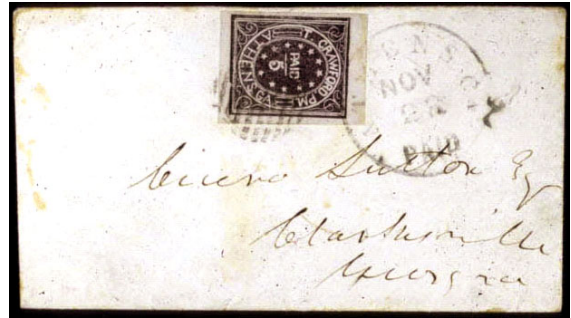 T. CRAWFORD. P.M.
ATHENS GA
PAID
5
ENS GA
NOV
22
PAID
Cicero Sutton Esq
Clarksville
Georgia